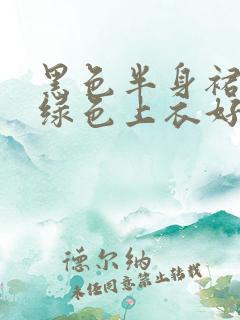 黑色半身裙
绿色上衣好
德尔纳
未经同意禁止转载